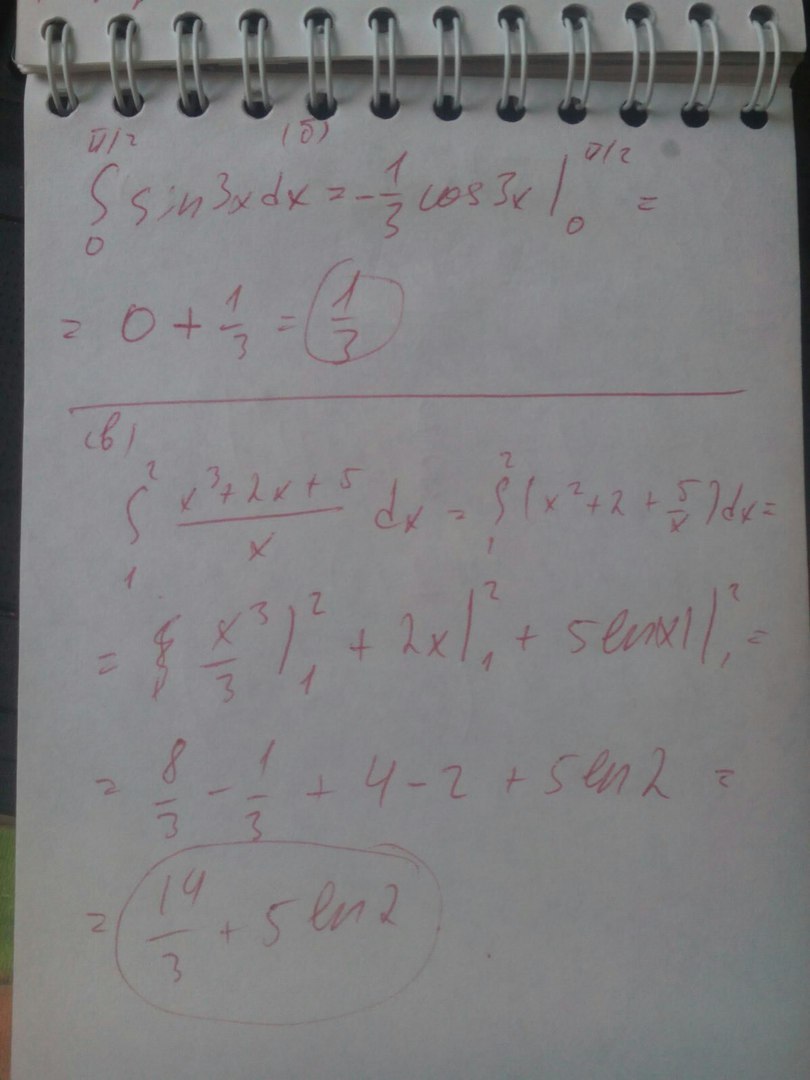 (б)
∫₀^{π/2} sin3xdx = -1/3 cos3x |₀^{π/2} =
= 0 + 1/3 = 1/3
(в)
∫₁² (x³+2x+5)/x dx = ∫₁² (x²+2+5/x)dx =
= x³/3 |₁² + 2x |₁² + 5ln|x| |₁² =
= 8/3 - 1/3 + 4 - 2 + 5ln2 =
= 14/3 + 5ln2